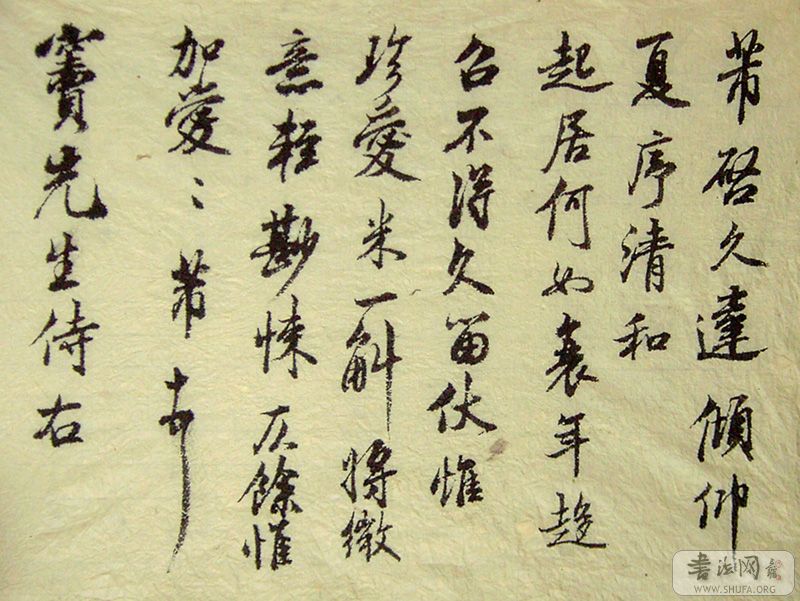 芾啓久違傾仰
夏序清和
起居何如衰年趍
召不得久留伏惟
珍愛米一斛將微
意輕尠悚仄餘惟
加愛〻芾頓首
竇先生侍右
书法网
WWW.SHUFA.ORG